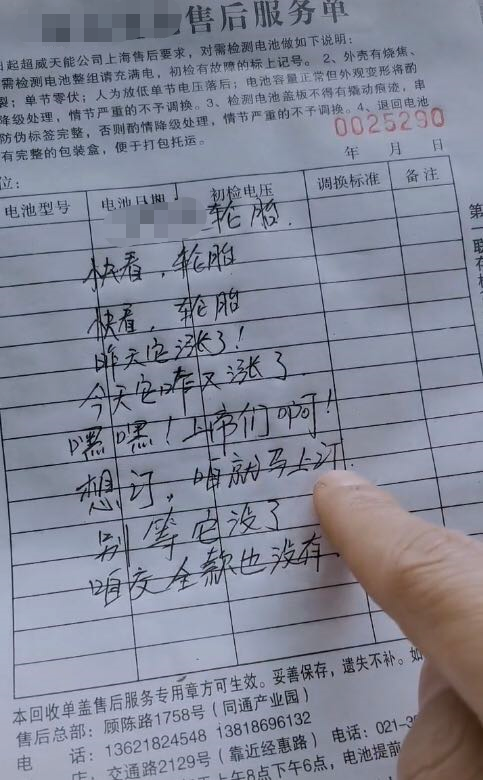 售后服务单
日起超威天能公司上海售后要求，对需检测电池做如下说明：
需检测电池整组请充满电，初检有故障的标上记号。 2、外壳有烧焦、
裂；单节零伏；人为放低单节电压落后；电池容量正常但外观变形将酌
降级处理，情节严重的不予调换。3、检测电池盖板不得有撬动痕迹，串
降级处理，情节严重的不予调换。4、退回电池
防伪标签完整，否则酌情降级处理，情节严重的不予调换。
有完整的包装盒，便于打包托运。
0025290
年 月 日
位：
电池型号 电池日期 初检电压 调换标准 备注
轮胎.
快看，轮胎
快看，轮胎
昨天它涨了！
今天它咋又涨了
嘿嘿！上帝们啊！
想订，咱就马上订.
别等它没了
咱交全款也没有
第一联
本回收单盖售后服务专用章方可生效。妥善保存，遗失不补。如
售后总部：顾陈路1758号（同通产业园）
电 话：13621824548 13818696132 电话：021-3
店：交通路2129号（靠近经惠路）
午8点下午6点，电池提前